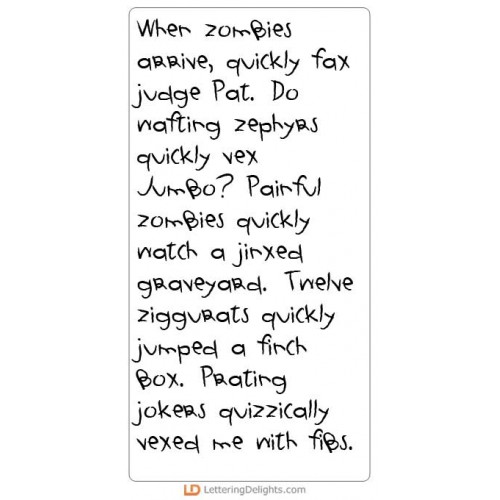 When zombies
arrive, quickly fax
judge Pat. Do
wafting zephyrs
quickly vex
Jumbo? Painful
zombies quickly
watch a jinxed
graveyard. Twelve
ziggurats quickly
jumped a finch
box. Prating
jokers quizzically
vexed me with fibs.
LD LetteringDelights.com